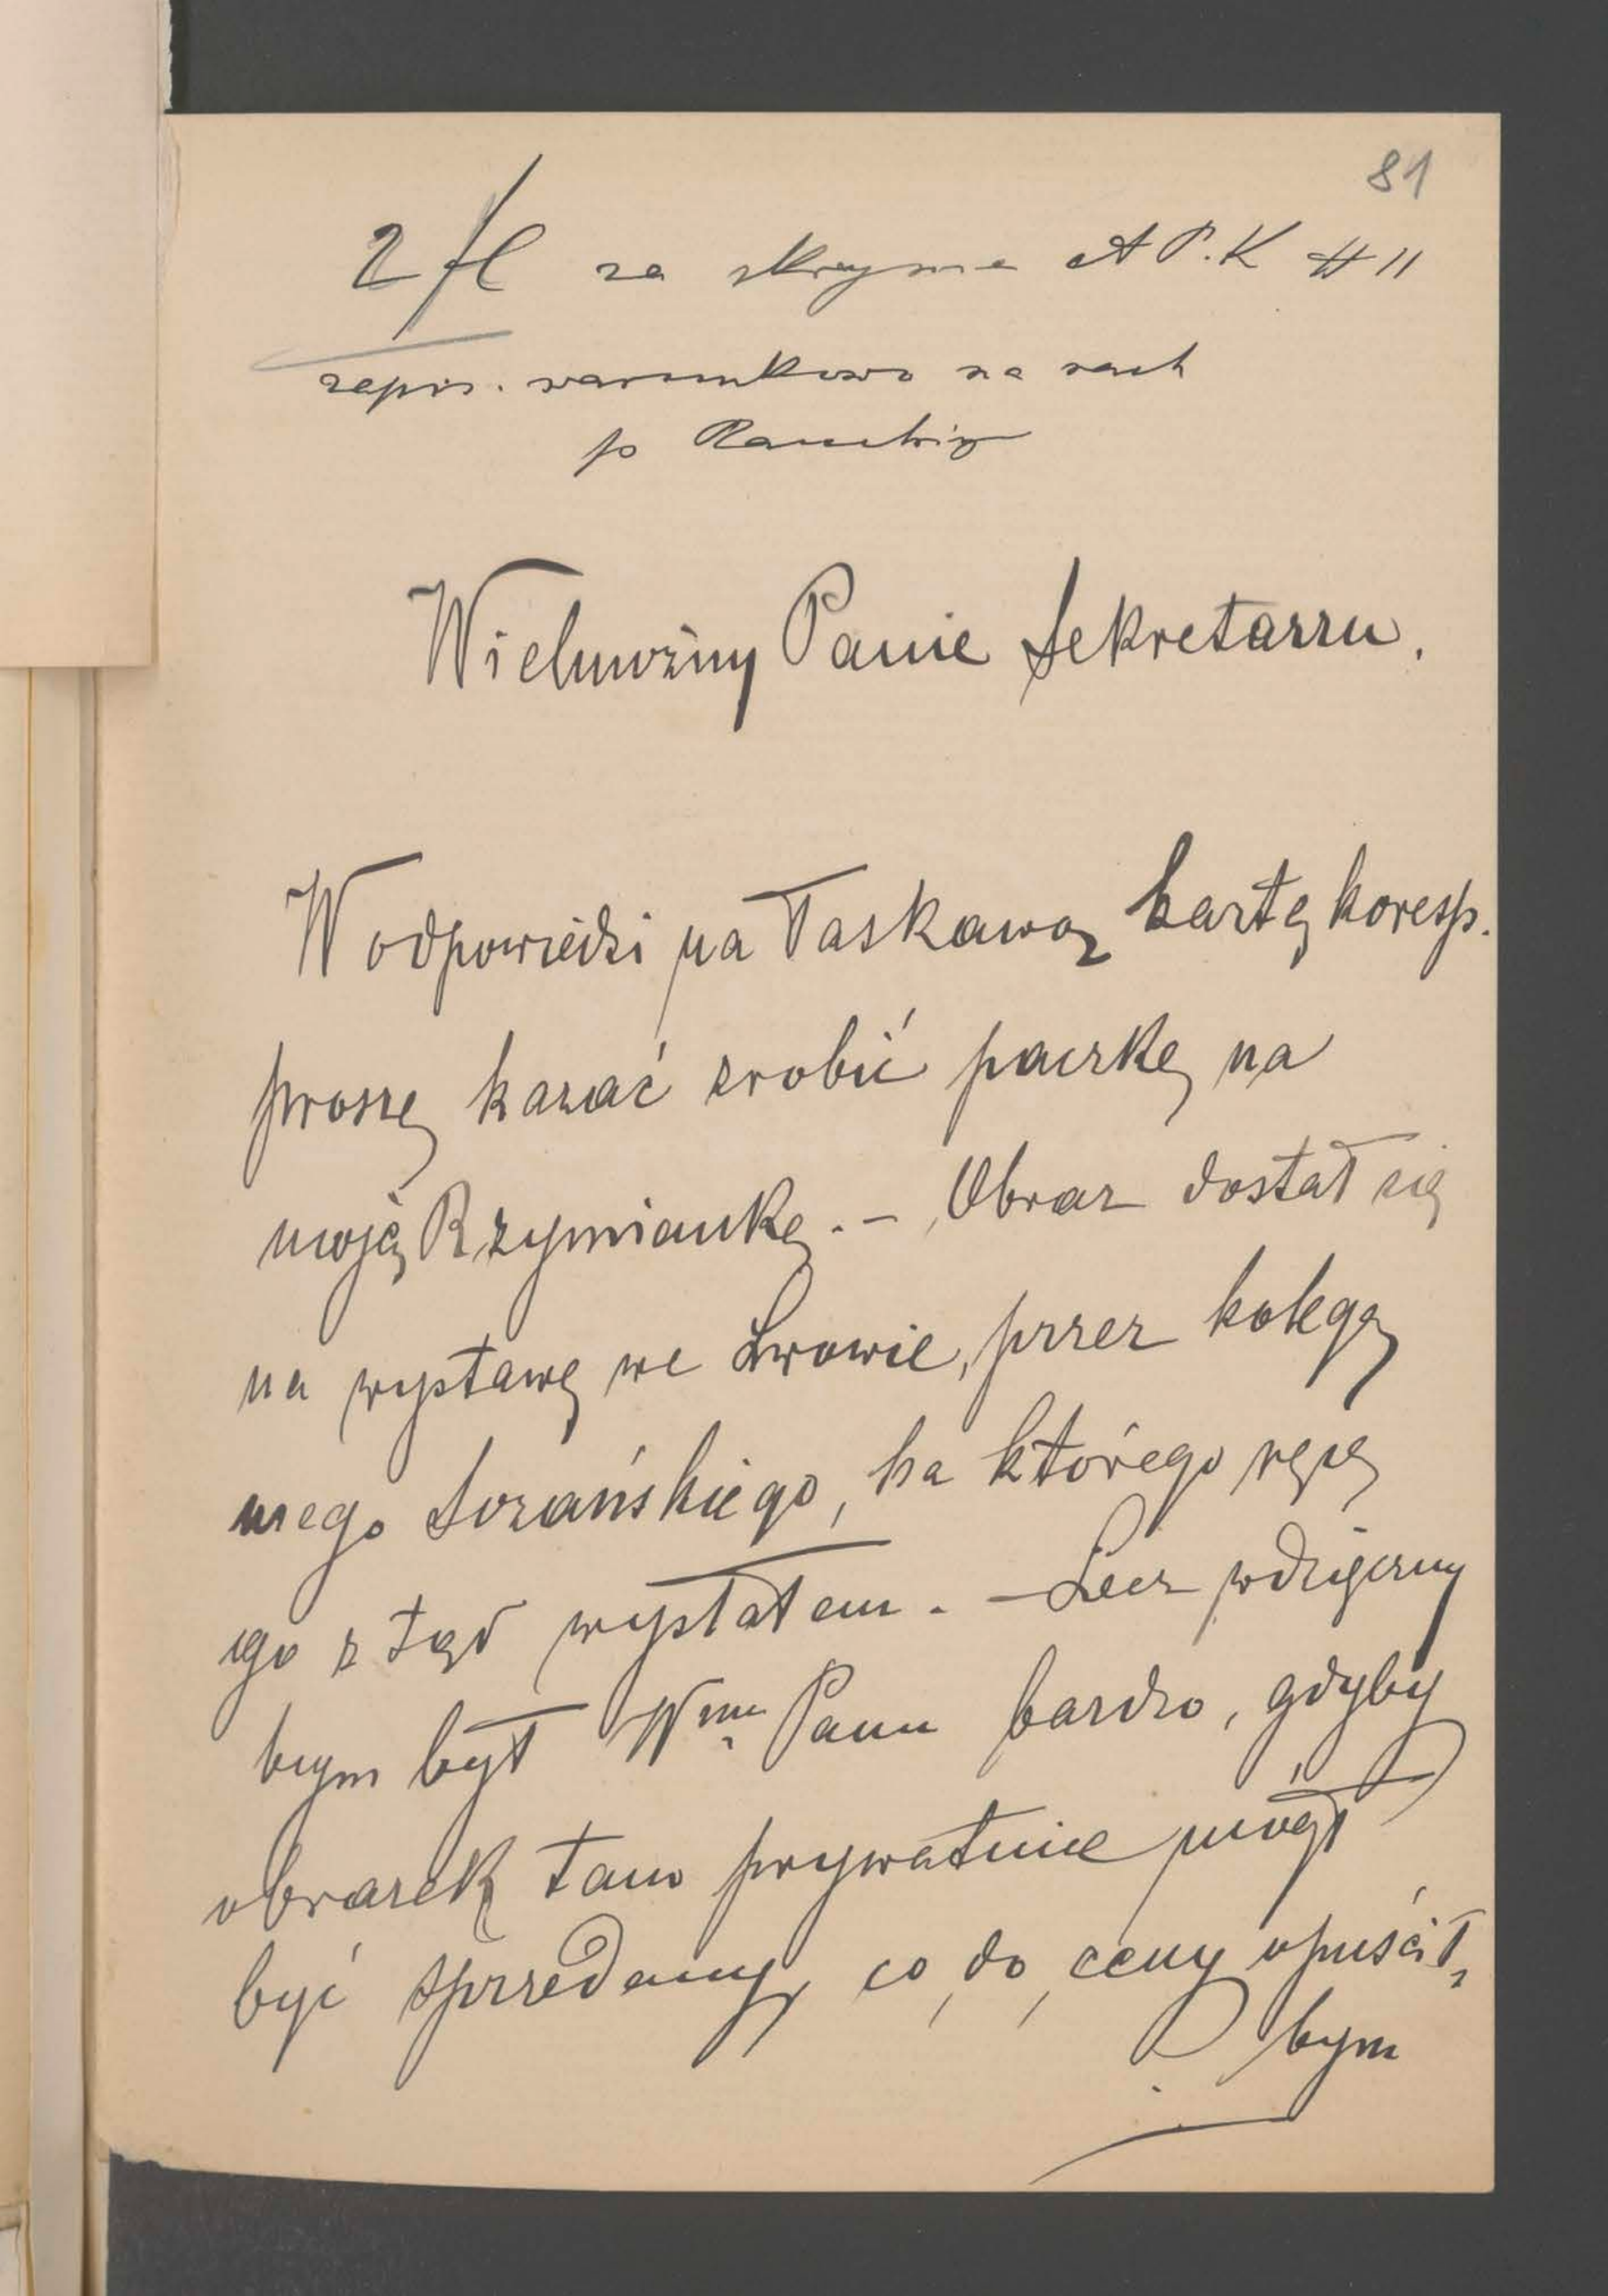 81
2 fl za skrzynie A P. K # 11
zapis. warunkowo na rach
p
Wielmożny Panie Sekretarzu.
W odpowiedzi na łaskawą kartę koresp.
proszę kazać zrobić paczkę na
moją Rzymiankę. – Obraz dostał się
na wystawę we Lwowie, przez kolegę
mego Sozańskiego, na którego ręce
go z tąd wysłałem. – Lecz wdzięczny
bym był Wmu Panu bardzo, gdyby
obrazek tam prywatnie mógł
być sprzedany, co do ceny opuścił,
bym